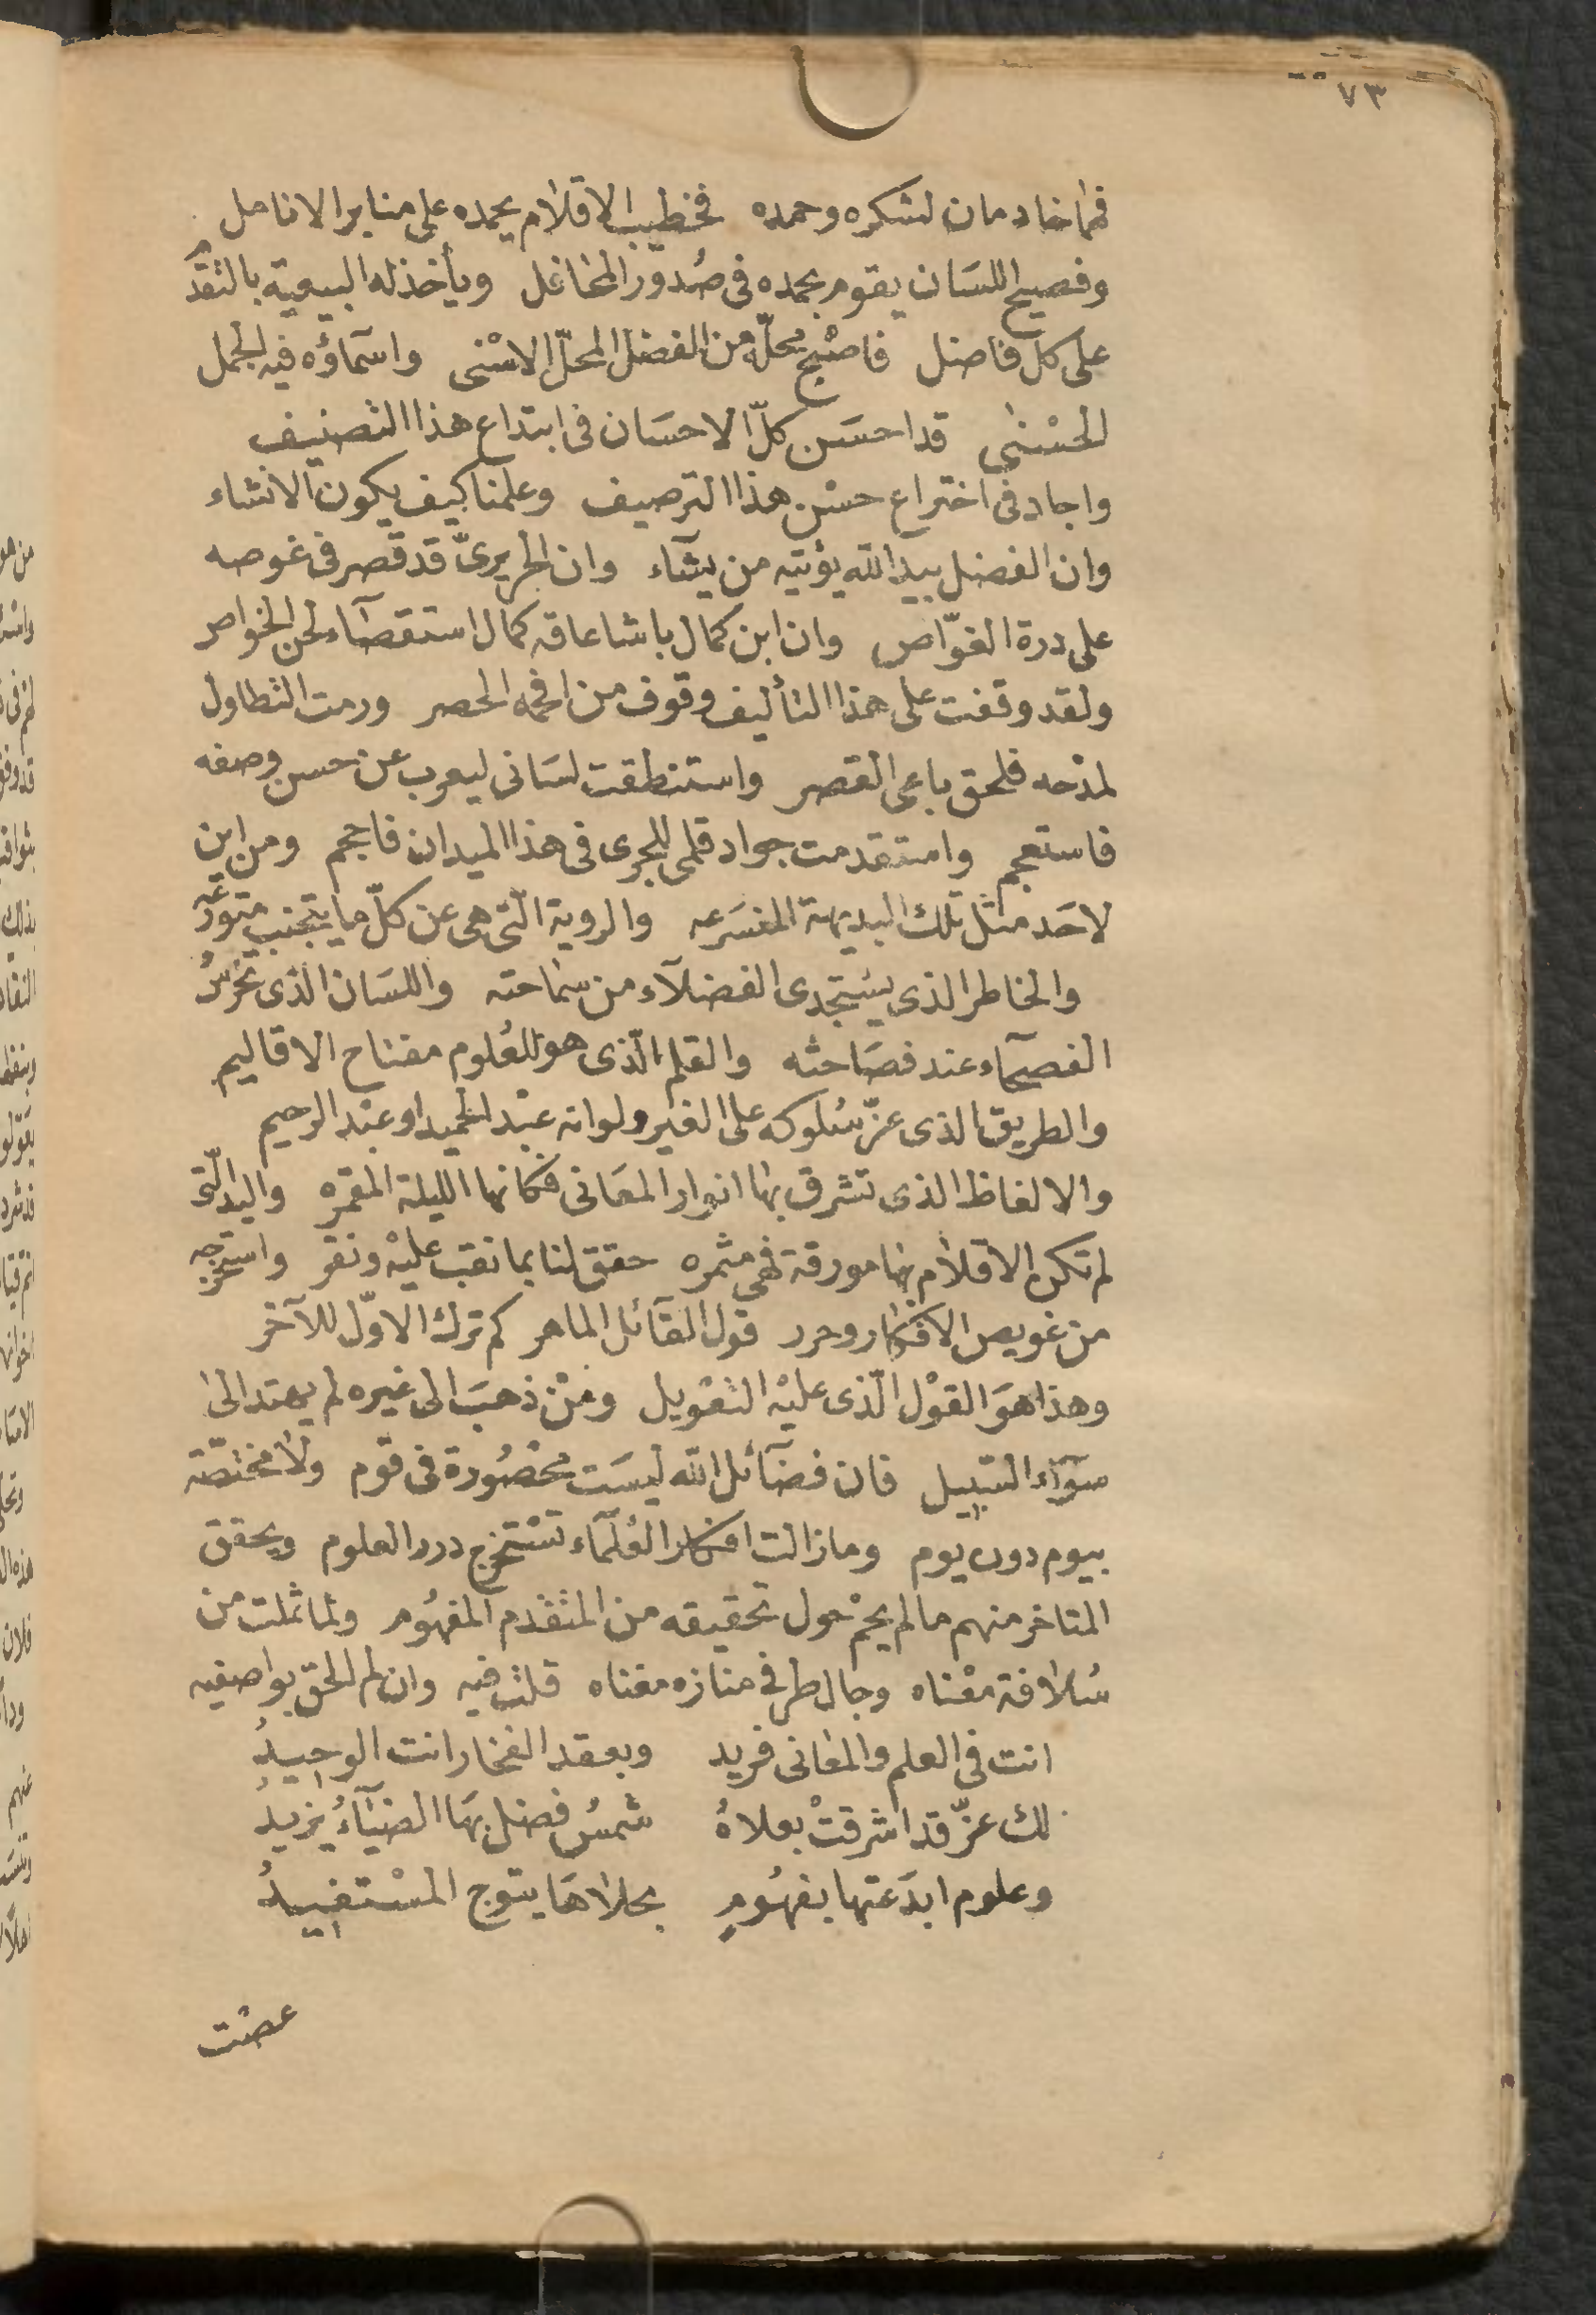 ٧٣
فهما خادمان لشكره وحمده فخطيب الاقلام يحمده على منابر الانامل
وفصيح اللسَان يقوم بحمده فى صُدور المحافل ويأخذ له البيعية بالتقدّم
على كل فاضل فاصْبح محلّه من الفضل المحلّ الاسْنى واسماؤه فيه الجمل
الحسْنى قد احسَن كلّ الاحسَان فى ابتداع هذا التصنيف
واجاد فى اختراع حسْن هذا الترصيف وعلمنا كيف يكون الانشاء
وان الفضل بيد الله يؤتيه من يشآء وان الحريرىّ قد قصر فى غوصه
على درة الغوّاص وان ابن كمال باشا عاقه كمال استقصآء لحن الخواص
ولقد وقفت على هذا التأليف وقوف من افحمه الحصر ورمت التطاول
لمدْحه فلحق باعى القصر واستنطقت لسَانى ليعرب عن حسن وصفه
فاستعجم واستقدمت جواد قلمى للجرى فى هذا الميدان فاحجم ومن اين
لاحَد مثل تلك البديهة المتسَرعه والروية الّتى هى عن كلّ ما يتجنب متورّعه
والخاطر الذى يسْتجدى الفضلآء من سماحته واللسَان الّذى تخرسُ
الفصحآء عند فصَاحته والقلم الّذى هو للعُلوم مفتاح الاقاليم
والطريق الذى عزّ سُلوكه على الغير ولو انه عبْد الحميد او عبْد الرحيم
والالفاظ الذى تشرق بها انوار المعَانى فكانها الليلة المقمره واليد الّتى
لم تكن الاقلام بها مورقة فهى مثمره حقق لنا بما نقب عليْه ونقر واستخرجه
من غويص الافكار وحرر قول القآئل الماهر كم ترك الاوّل للآخر
وهذا هوَ القوْل الّذى عليْه التعْويل ومنْ ذهبَ الى غيره لم يهتد الى
سوآء السّبيل فان فضَآئل الله ليسَت محْصُورة فى قوْم ولا مختصّة
بيوم دون يوم وما زالت افكار العُلمآء تسْتخرج درر العلوم ويحقق
المتاخر منهم ما لم يحُمْ حول تحقيقه من المتقدم المفهُوم ولما ثملت من
سُلافة معْناه وجال طرفى فى منازه مغناه قلت فيه وان لم الحق بواصفيه
انت فى العلم والمعَانى فريد وبعقد الفخار انت الوحيدُ
لك عزّ قد اشرقتْ بعلاهُ شمسُ فضل بهَا الضيَآءُ يزيدُ
وعلوم ابدَعتها بفهُومٍ بحلاهَا يتوج المسْتفيدُ
عضت